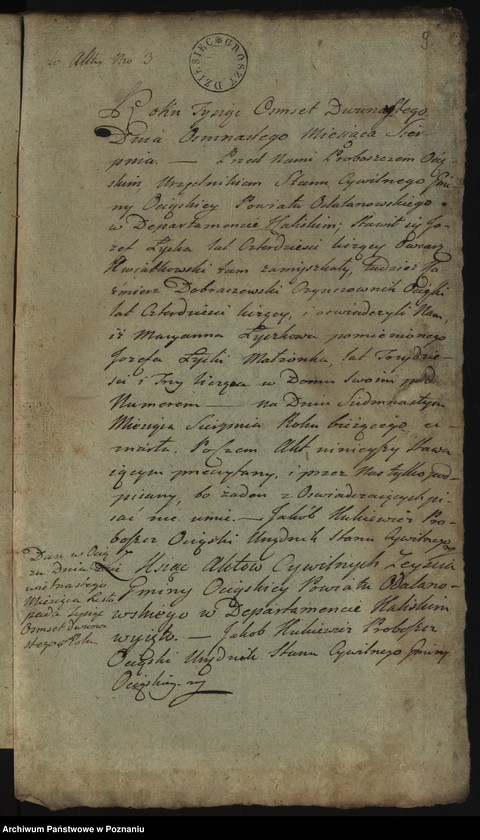 w Aktu Nro 3
DZIESIĘC GROSZY
9
Roku Tysiąc Osmset Dwunastego
Dnia Osmnastego Miesiąca Sier-
pnia. — Przed Nami Proboszczem Ocią-
skim Urzędnikiem Stanu Cywilnego Gmi-
ny Ociąskiey Powiatu Odalanowskiego
w Departamencie Kaliskim; stawił się Jo-
zef Łycka lat Czterdzieści liczący Owczarz
Kwiatkowski tam zamieszkały, tudzież Ka-
zimierz Dobraszewski Czynszownik Ociąski
lat Czterdzieści liczący, i oswiadczyli Nam,
iż Maryanna Łyczkowa pomienionego
Jozefa Łycki Małżonka, lat Trzydzie-
sci i Trzy licząca w Domu swoim pod
Numerem — na Dniu Siedmnastym
Miesiąca Sierpnia Roku bieżącego u-
marła. Poczem Akt ninieyszy stawa-
iącym przeczytany, i przez Nas tylko pod-
pisany, bo żaden z Oswiadczaiących pi-
sać nie umie. — Jakób Kukiewicz Pro-
boszcz Ociąski Urzędnik Stanu Cywilnego
Z Xsiąg Aktów Cywilnych Zeyścia
Gminy Ociąskiey Powiatu Odalano-
wskiego w Departamencie Kaliskim
wyięto. — Jakob Kukiewicz Proboszcz
Ociąski Urzędnik Stanu Cywilnego Gminy
Ociąskiey.
Dan w Ocią-
zu Dnia Dzie-
więtnastego
Miesiąca Listo-
pada Tysiąc
Osmset Dwuna-
stego Roku
Archiwum Państwowe w Poznaniu